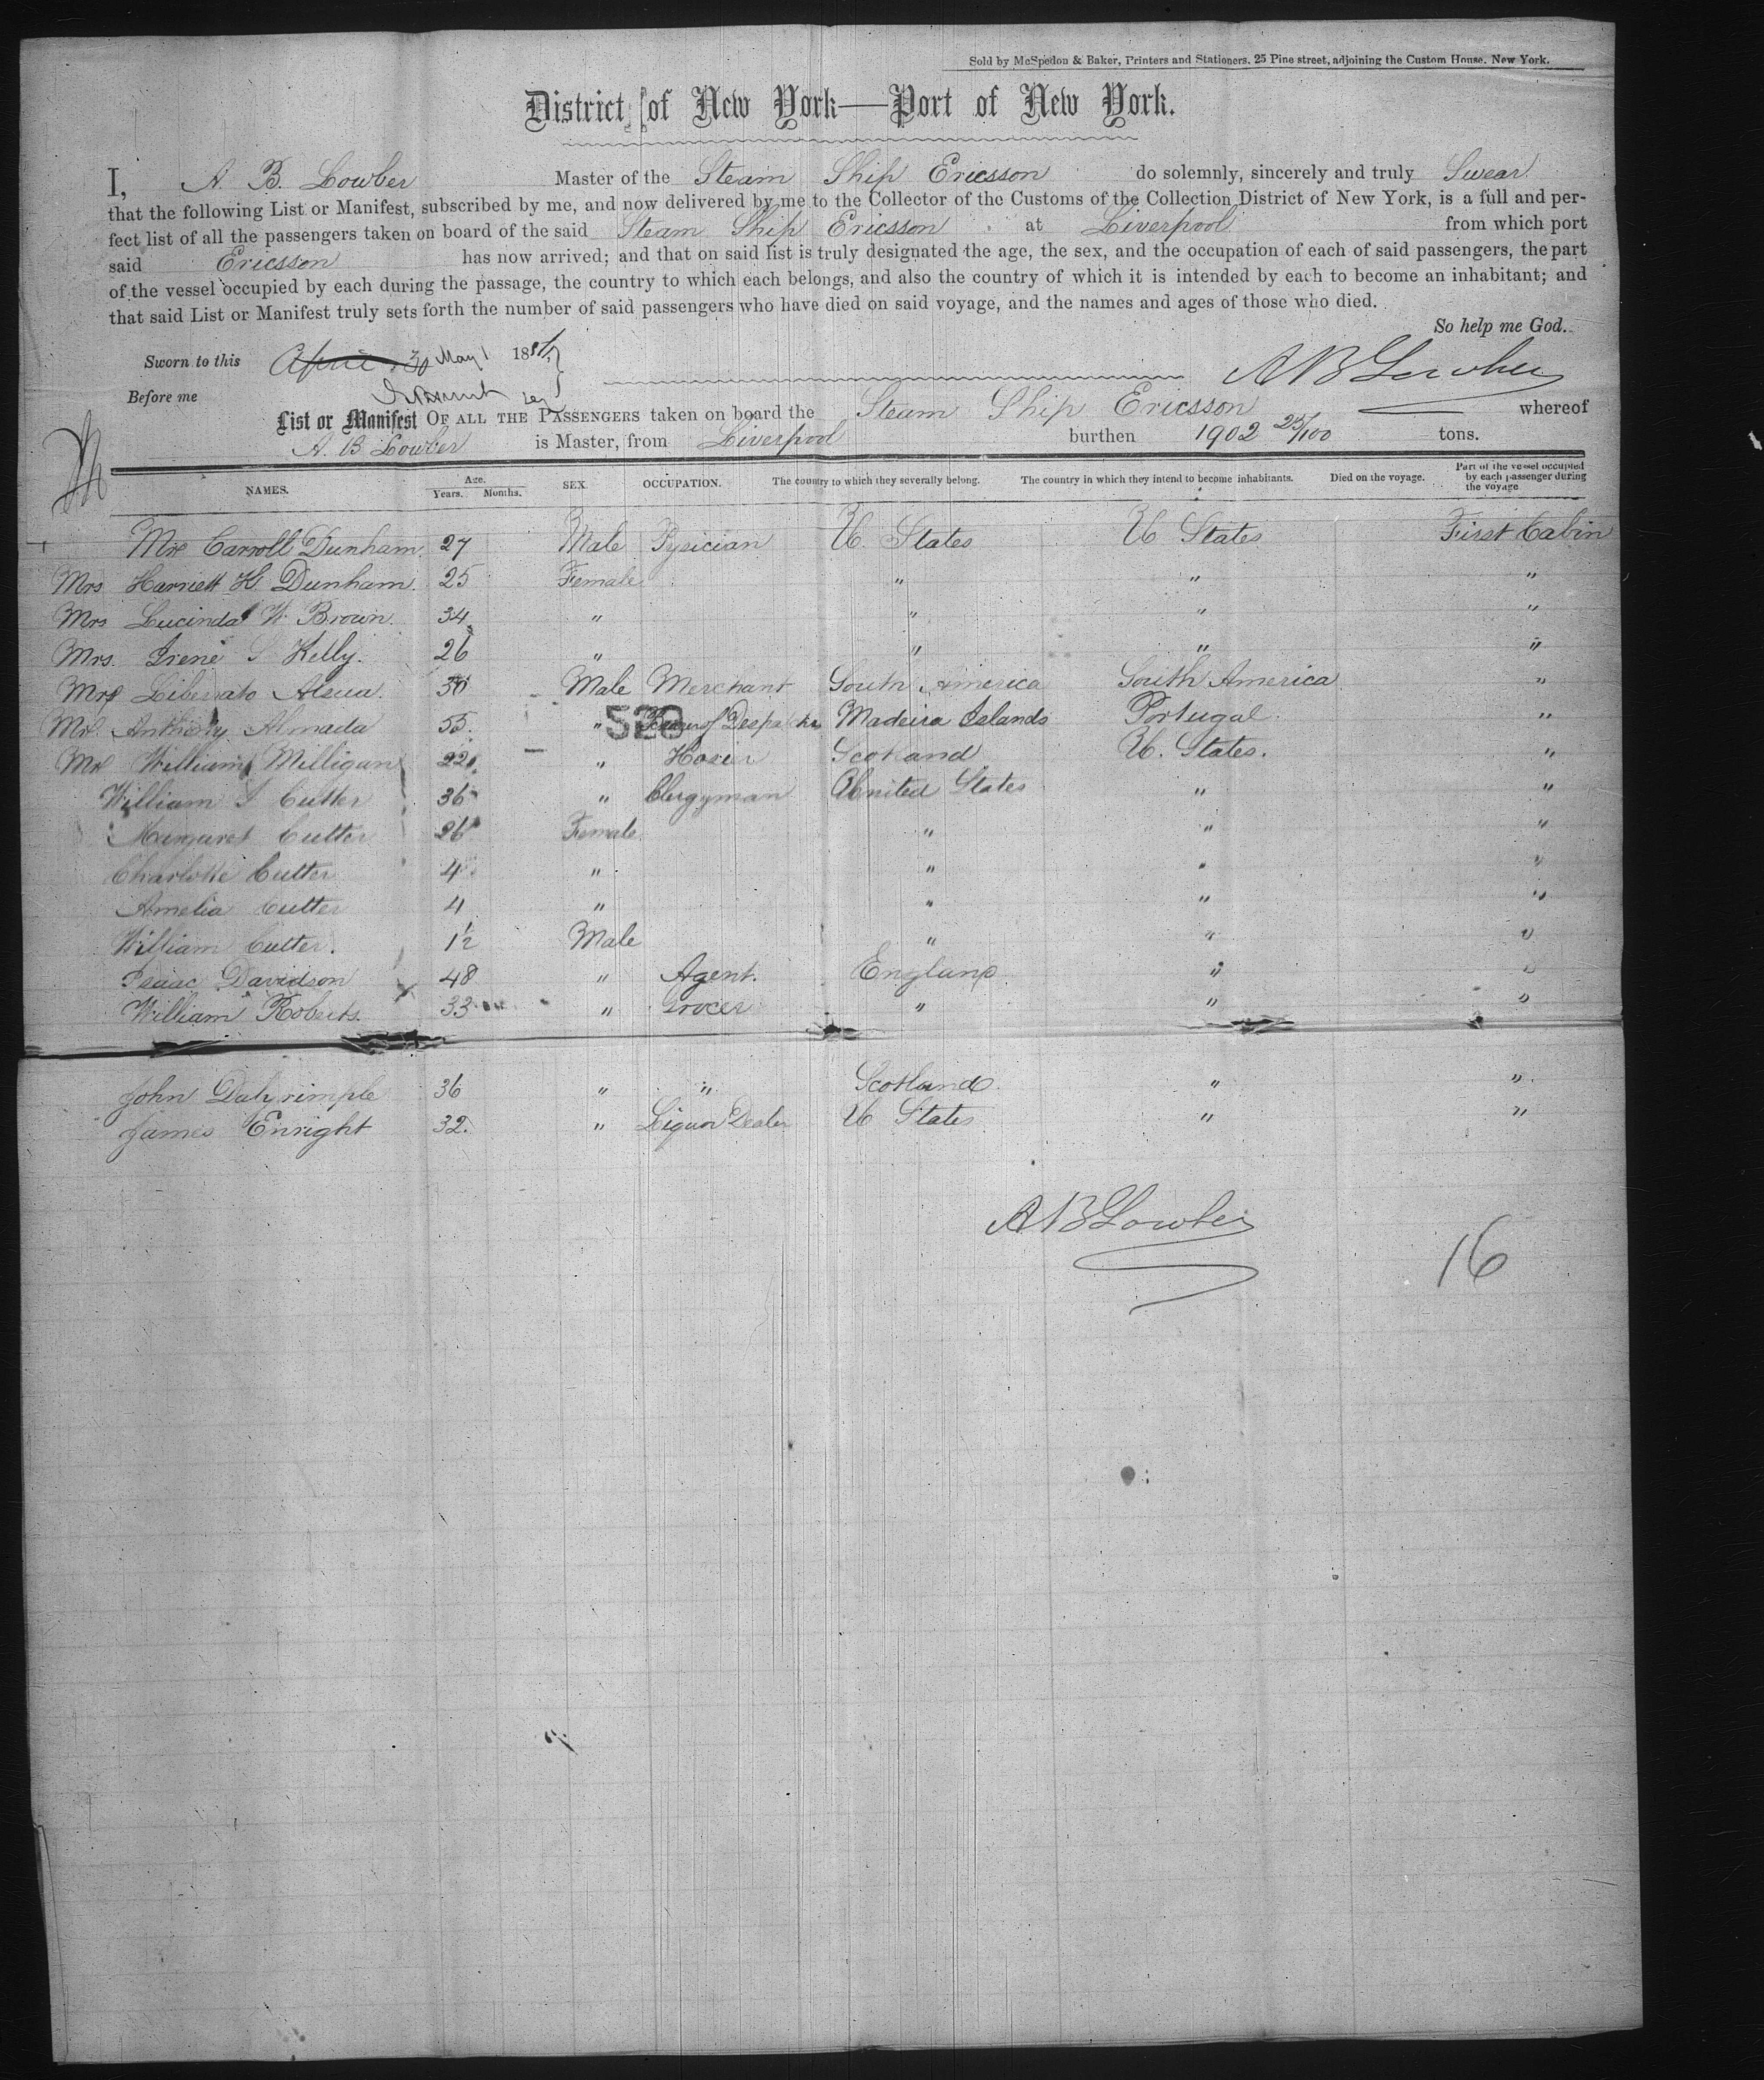 Sold by McSpedon & Baker, Printers and Stationers, 25 Pine street, adjoining the Custom House, New York.
District of New York—Port of New York.
I, A. B. Lowber Master of the Steam Ship Ericsson do solemnly, sincerely and truly Swear
that the following List or Manifest, subscribed by me, and now delivered by me to the Collector of the Customs of the Collection District of New York, is a full and per-
fect list of all the passengers taken on board of the said Steam Ship Ericsson at Liverpool from which port
said Ericsson has now arrived; and that on said list is truly designated the age, the sex, and the occupation of each of said passengers, the part
of the vessel occupied by each during the passage, the country to which each belongs, and also the country of which it is intended by each to become an inhabitant; and
that said List or Manifest truly sets forth the number of said passengers who have died on said voyage, and the names and ages of those who died.
So help me God.
Sworn to this April 30 May 1 18
A B Lowber
Before me
List or Manifest OF ALL THE PASSENGERS taken on board the Steam Ship Ericsson whereof
A. B Lowber is Master, from Liverpool burthen 1902 25/100 tons.
NAMES. Age. Years. Months. SEX. OCCUPATION. The country to which they severally belong. The country in which they intend to become inhabitants. Died on the voyage. Part of the vessel occupied by each passenger during the voyage
Mr Carroll Dunham. 27 Male Pysician U. States U States First Cabin
Mrs Harriett H. Dunham. 25 Female " " "
Mrs Lucinda W. Brown. 34 " " " "
Mrs. Irene S Kelly. 26 " " " "
Mr Liberato Alsua. 30 Male Merchant South America South America "
Mr. Anthony Almada 55. " Bearer of Despatches Madeira Islands Portugal. "
520
Mr William Milligan 22 " Hosier Scotland U. States. "
William S Cutter 36 " Clergyman United States " "
Margaret Cutter 26 Female " " "
Charlotte Cutter 4 " " " "
Amelia Cutter 4 " " " "
William Cutter. 1½ Male " " "
Isaac Davidson 48 " Agent. England " "
William Roberts. 33 " Grocer " " "
John Dalyrimple 36 " " Scotland " "
James Enright 32. " Liquor Dealer U States " "
A B Lowber
16